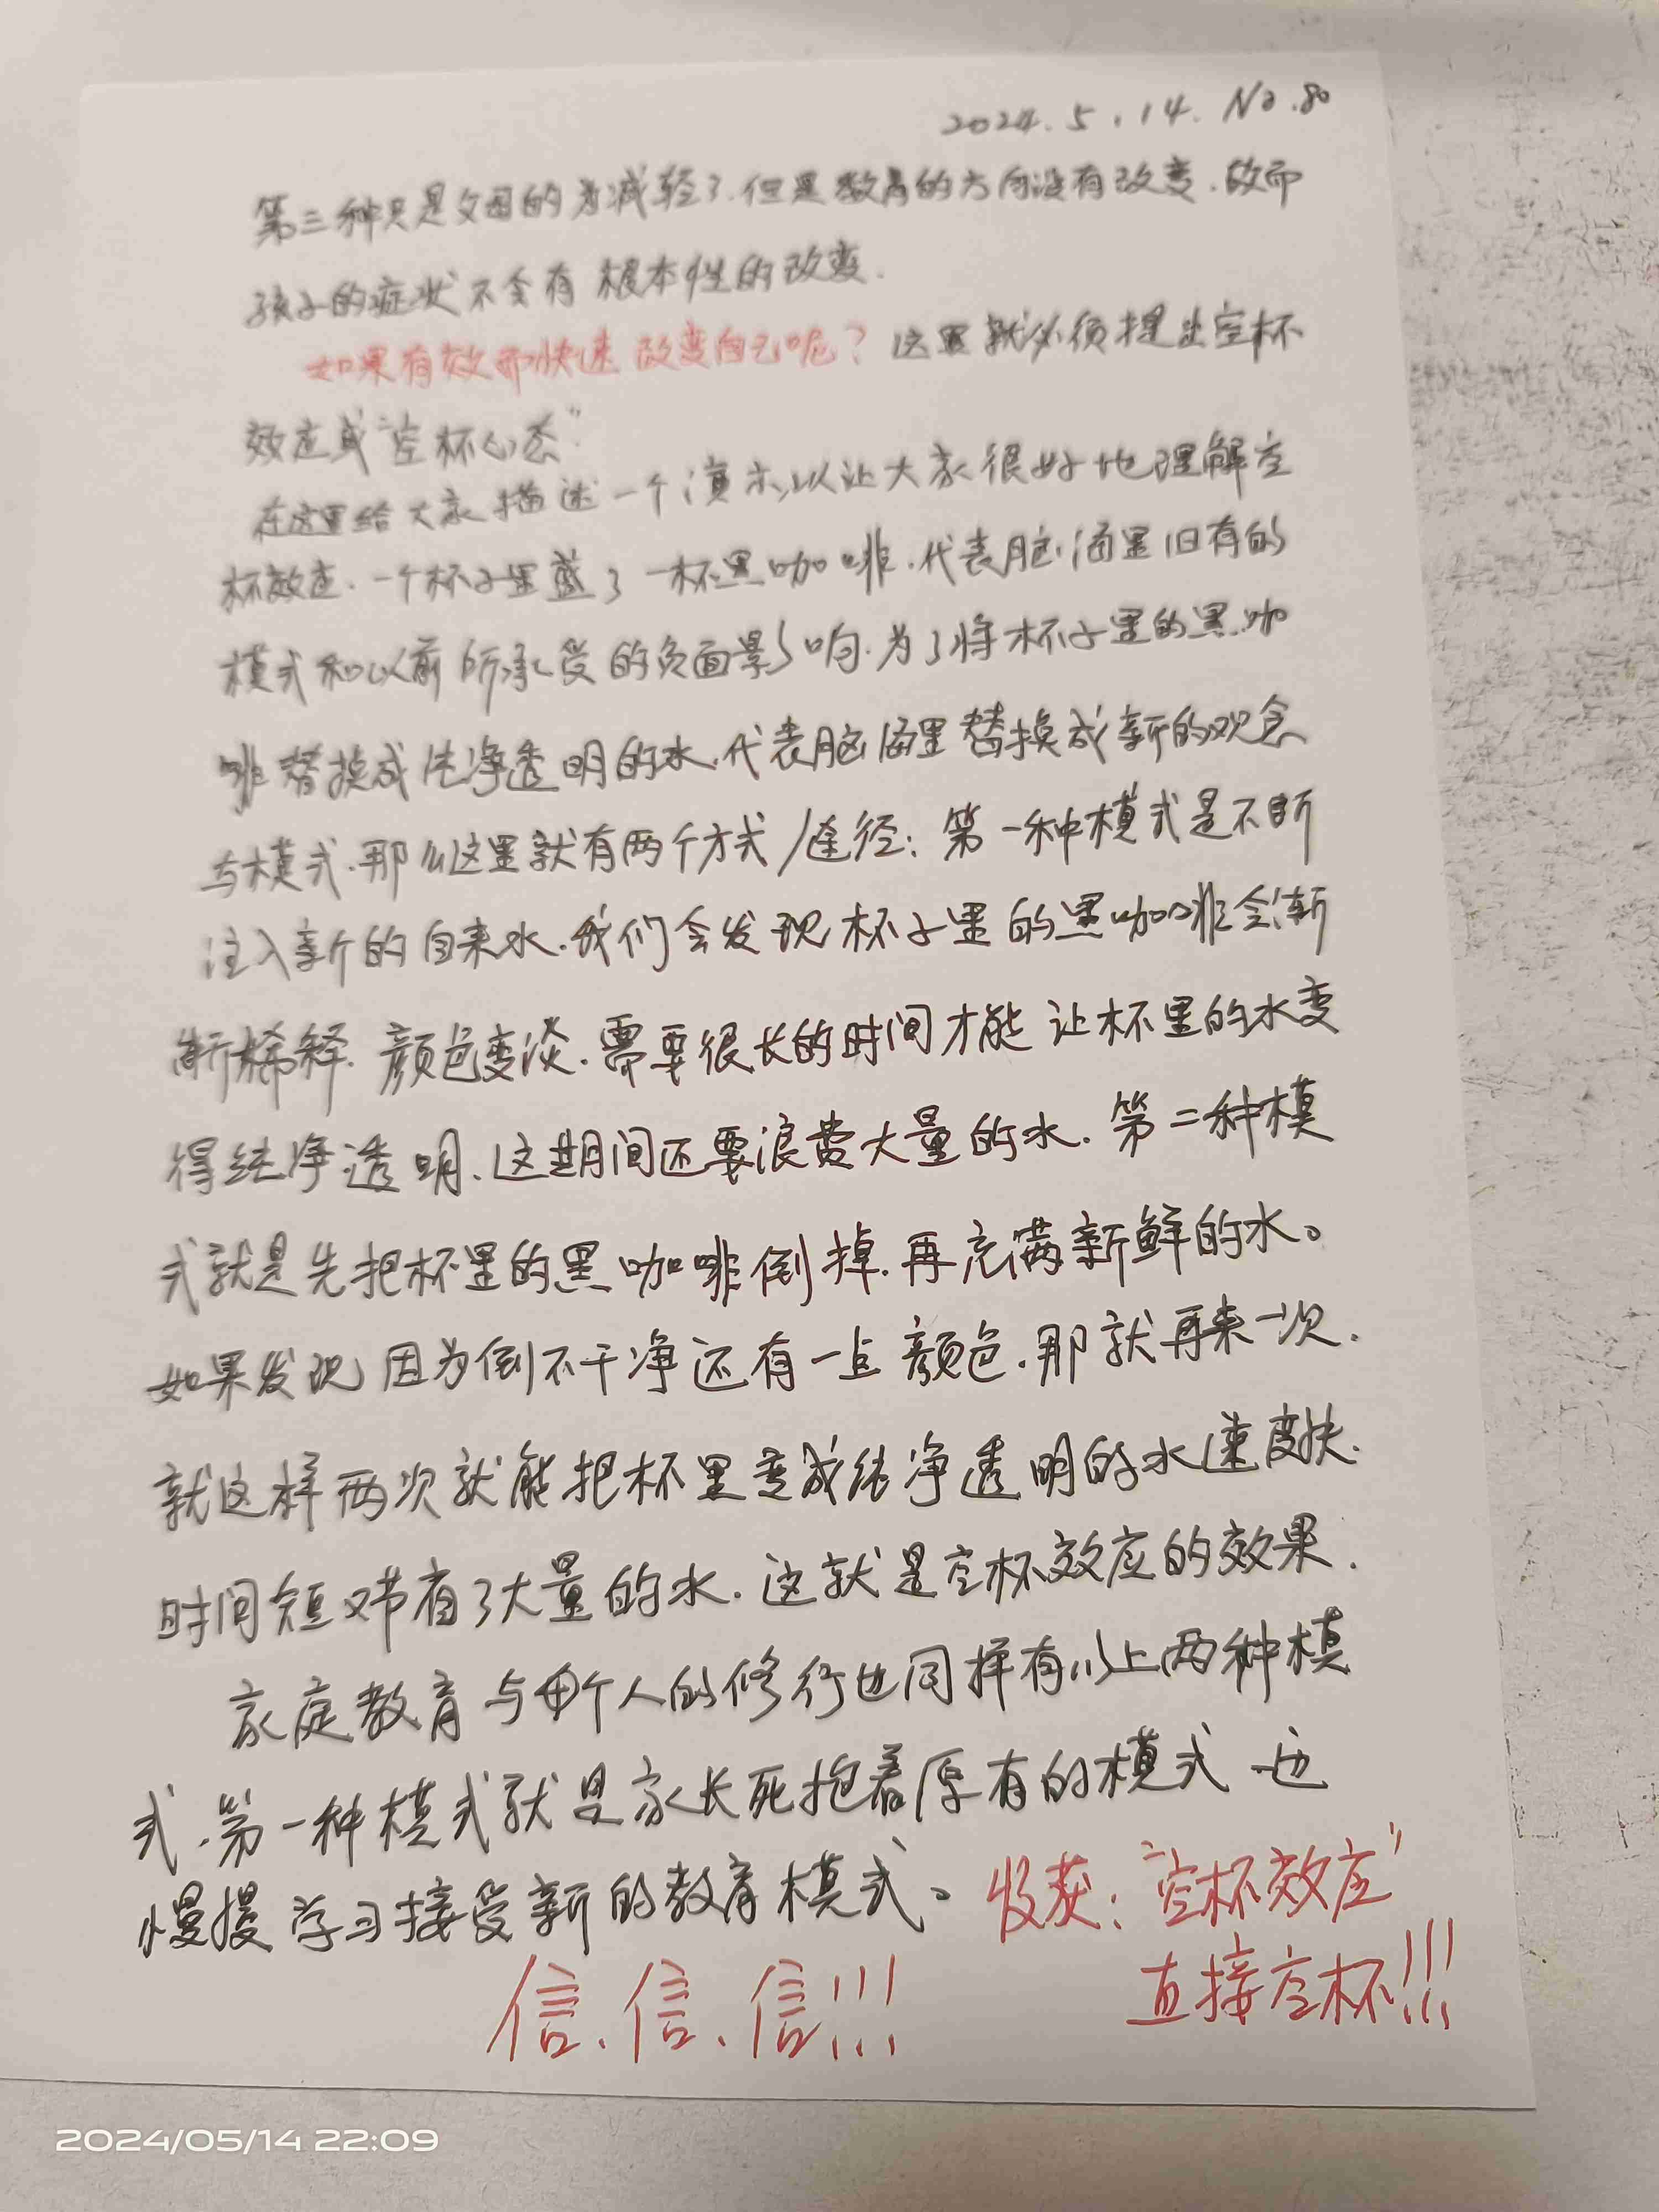 2024.5.14. No.80
第三种只是父母的为减轻了.但是教育的方向没有改变.故而
孩子的症状不会有根本性的改变.
如果有效而快速改变自己呢？这里就必须提出空杯
效应或“空杯心态”
在这里给大家描述一个演示,以让大家很好地理解空
杯效应.一个杯子里盛了一杯黑咖啡.代表脑海里旧有的
模式和以前所承受的负面影响.为了将杯子里的黑咖
啡替换成洁净透明的水.代表脑海里替换成新的观念
与模式.那么这里就有两个方式/途径:第一种模式是不断
注入新的自来水.我们会发现杯子里的黑咖啡会渐
渐稀释.颜色变淡.需要很长的时间才能让杯里的水变
得纯净透明.这期间还要浪费大量的水.第二种模
式就是先把杯里的黑咖啡倒掉.再充满新鲜的水。
如果发现因为倒不干净还有一点颜色.那就再来一次.
就这样两次就能把杯里变成纯净透明的水速度快.
时间短又节省了大量的水.这就是空杯效应的效果.
家庭教育与每个人的修行也同样有以上两种模
式.第一种模式就是家长死抱着原有的模式.边
慢慢学习接受新的教育模式。收获:“空杯效应”
信、信、信!!! 直接空杯!!!
2024/05/14 22:09